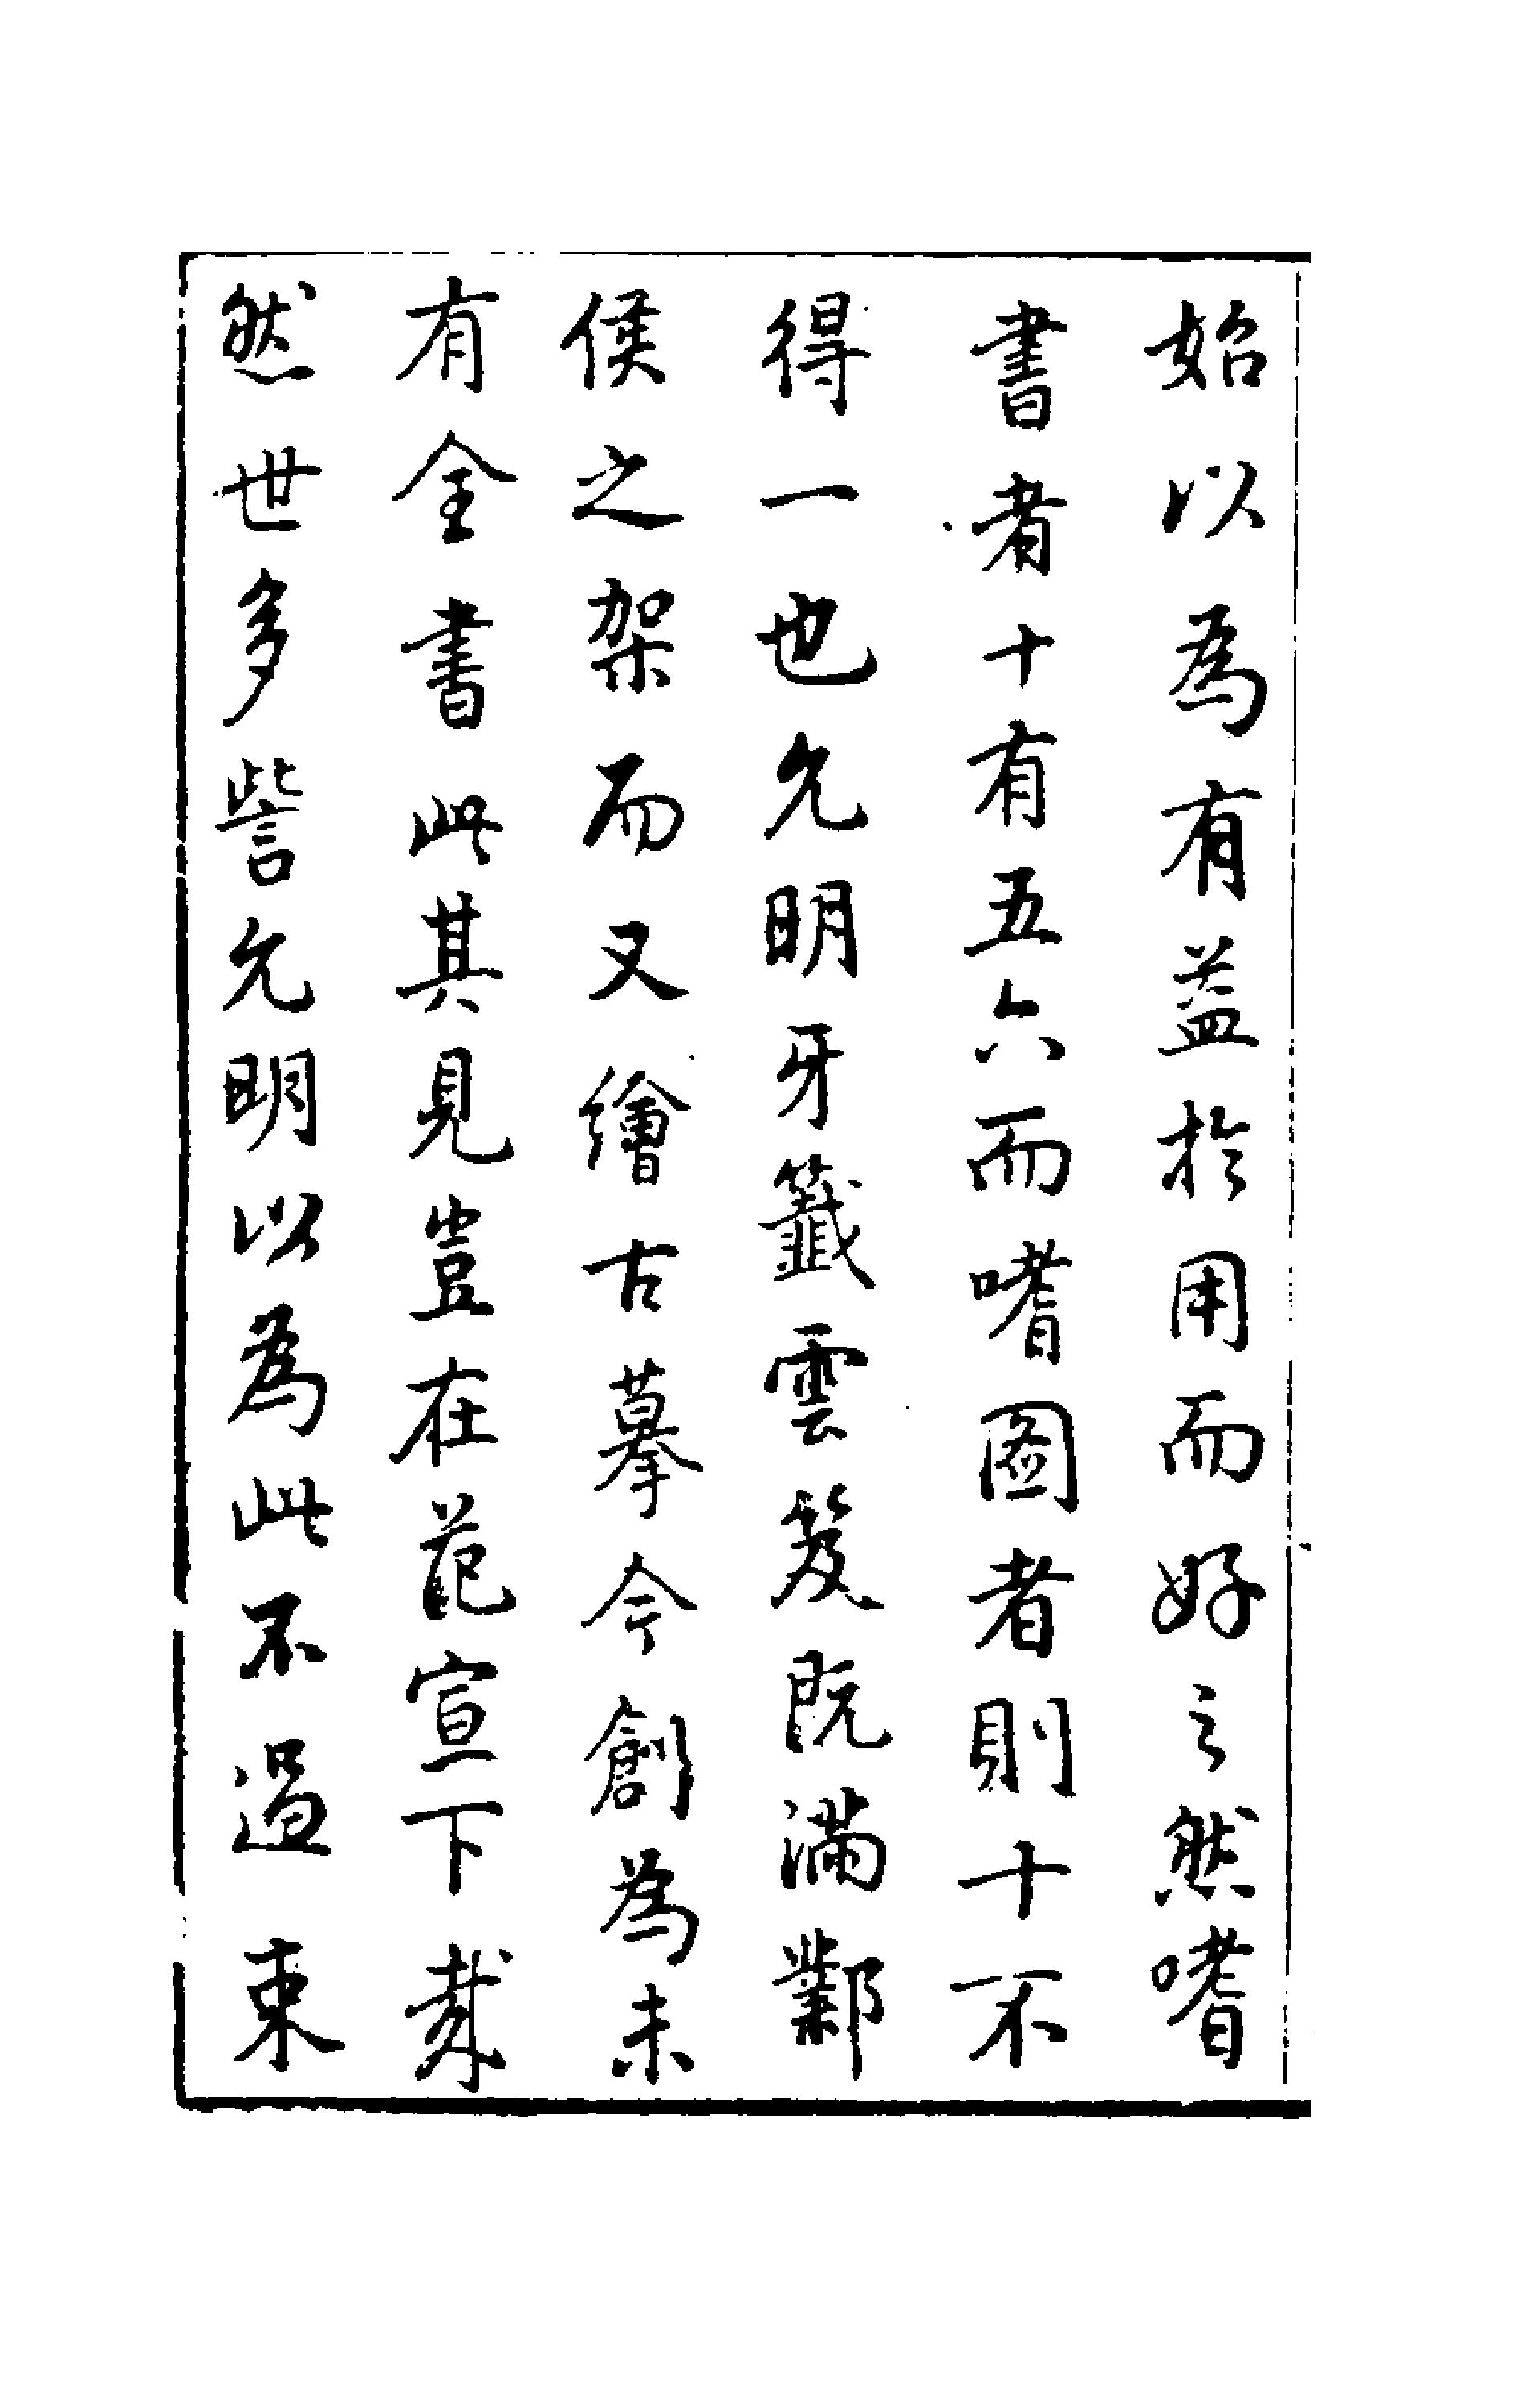 始以為有益於用而好之然嗜
書者十有五六而嗜圖者則十不
得一也允明牙籤雲笈既滿鄴
侯之架而又繪古摹今創為未
有全書此其見豈在范宣下哉
然世多訾允明以為此不過束